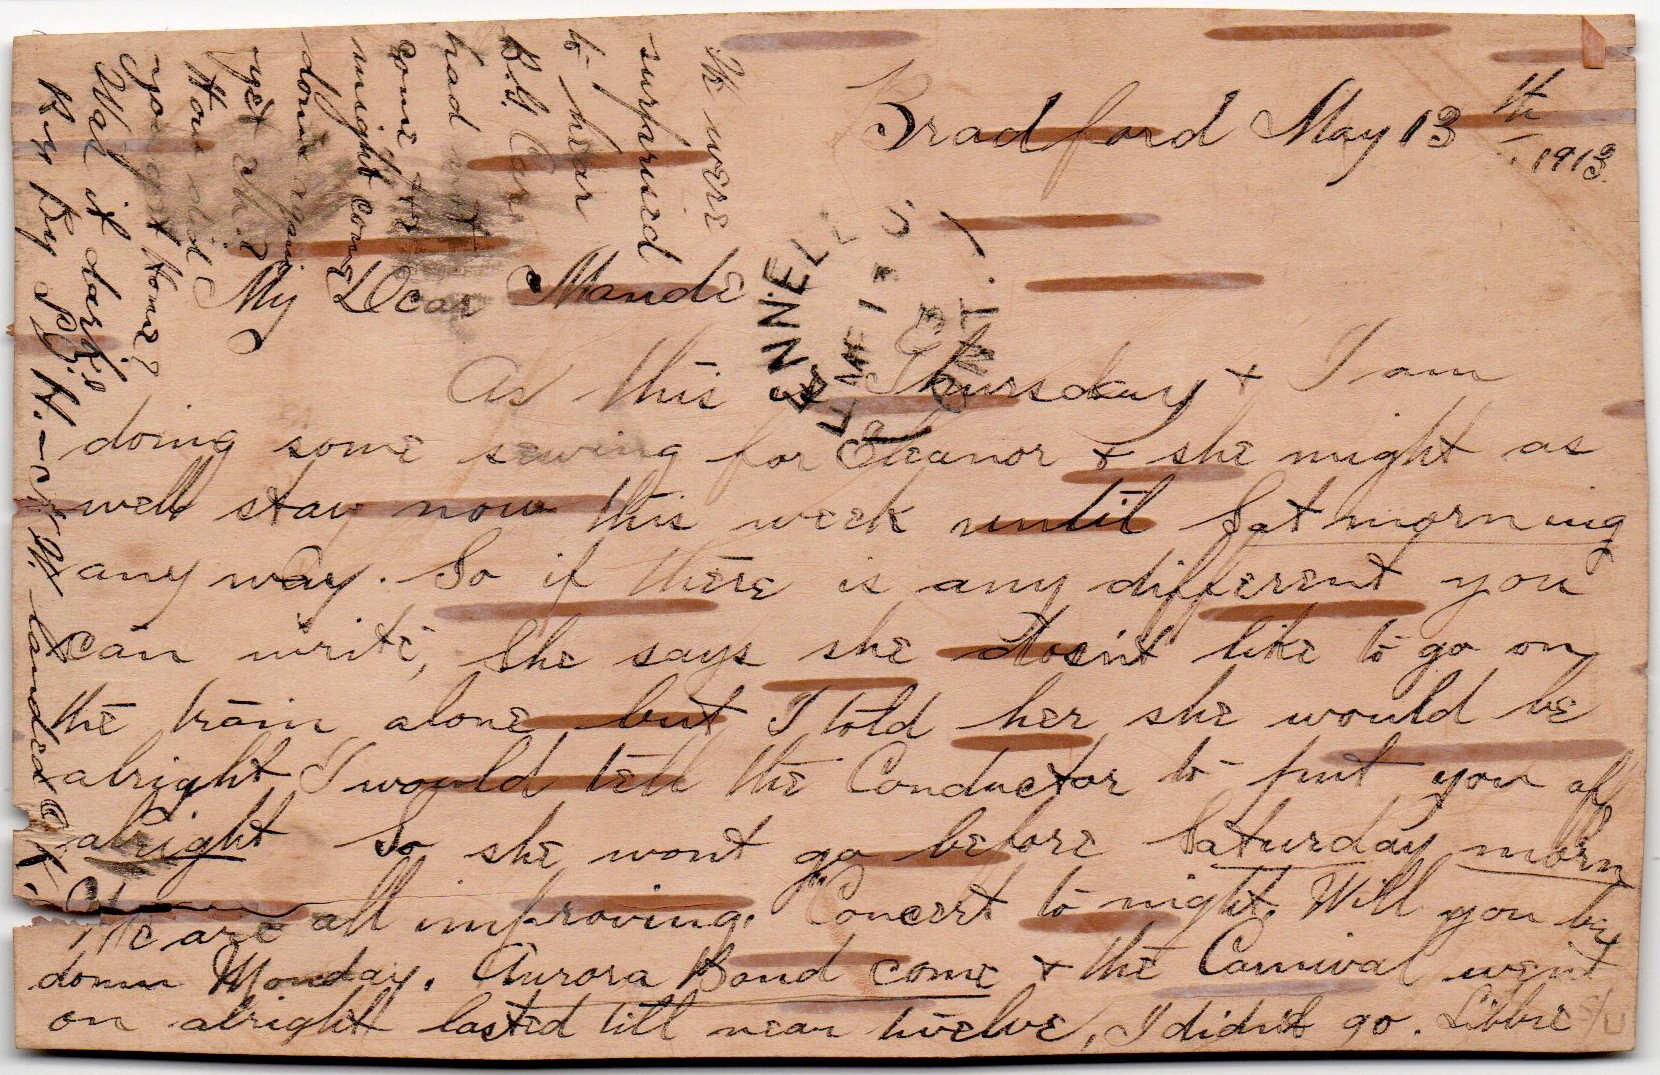 Bradford May 13th
1913.
My Dear Maude
As this is Thursday + I am
doing some sewing for Eleanor + she might as
well stay now this week until Sat morning
any way. So if there is any different you
can write, She says she doesn't like to go on
the train alone but I told her she would be
alright I would tell the Conductor to put you off
alright So she wont go before Saturday morn
We are all improving. Concert to night. Will you be
down Monday. Aurora Band come + the Carnival went
on alright lasted till near twelve, I didn't go. Libbie
We were
surprised
to hear
had not
come +
might come
down again
yet
How did
you get home?
Was it dark?
landed O.K.
ENNELL
ONT.